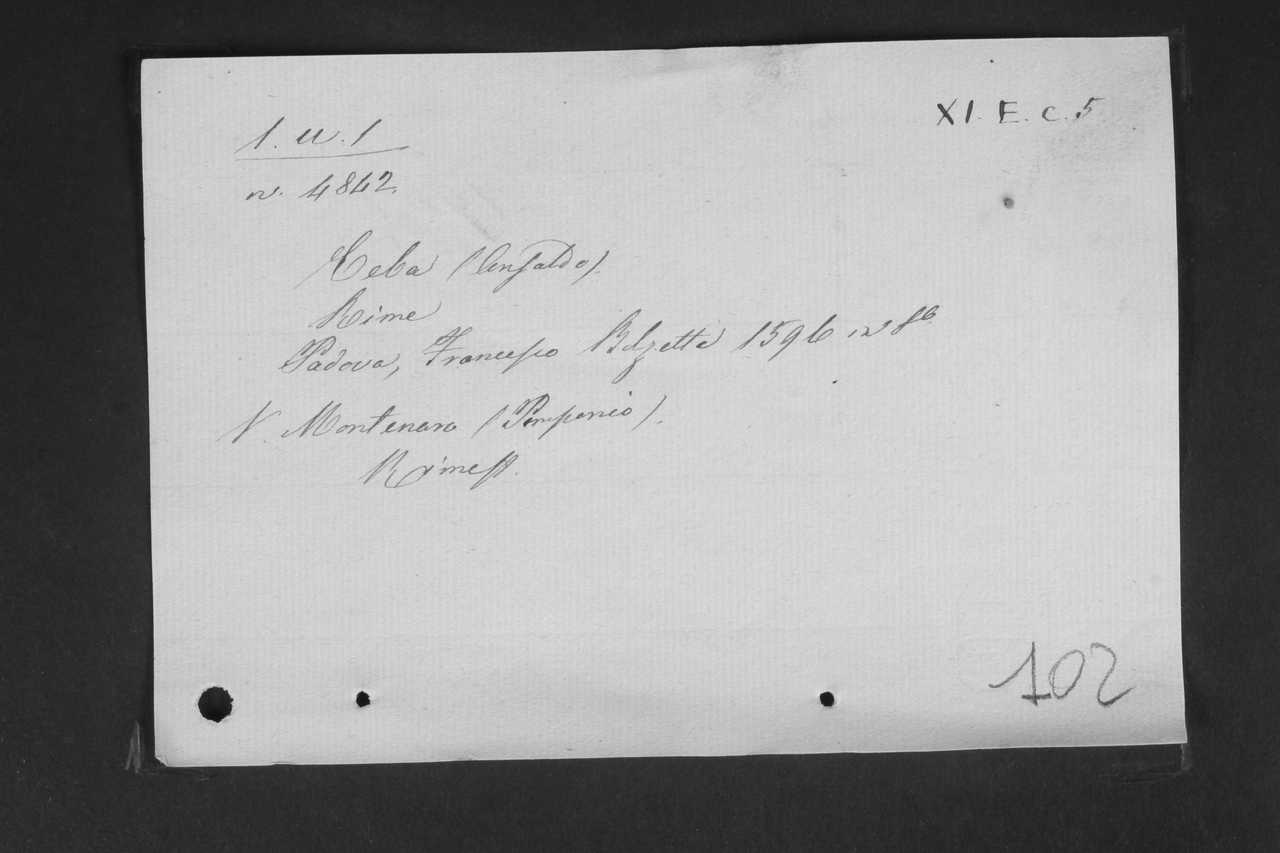 XI. E. c. 5
1. u. 1
n. 4842.
Ceba (Ansaldo).
Rime
Padova, Francesco Bolzetta 1596 in 8º
V. Montenaro (Pomponio).
Rime
102